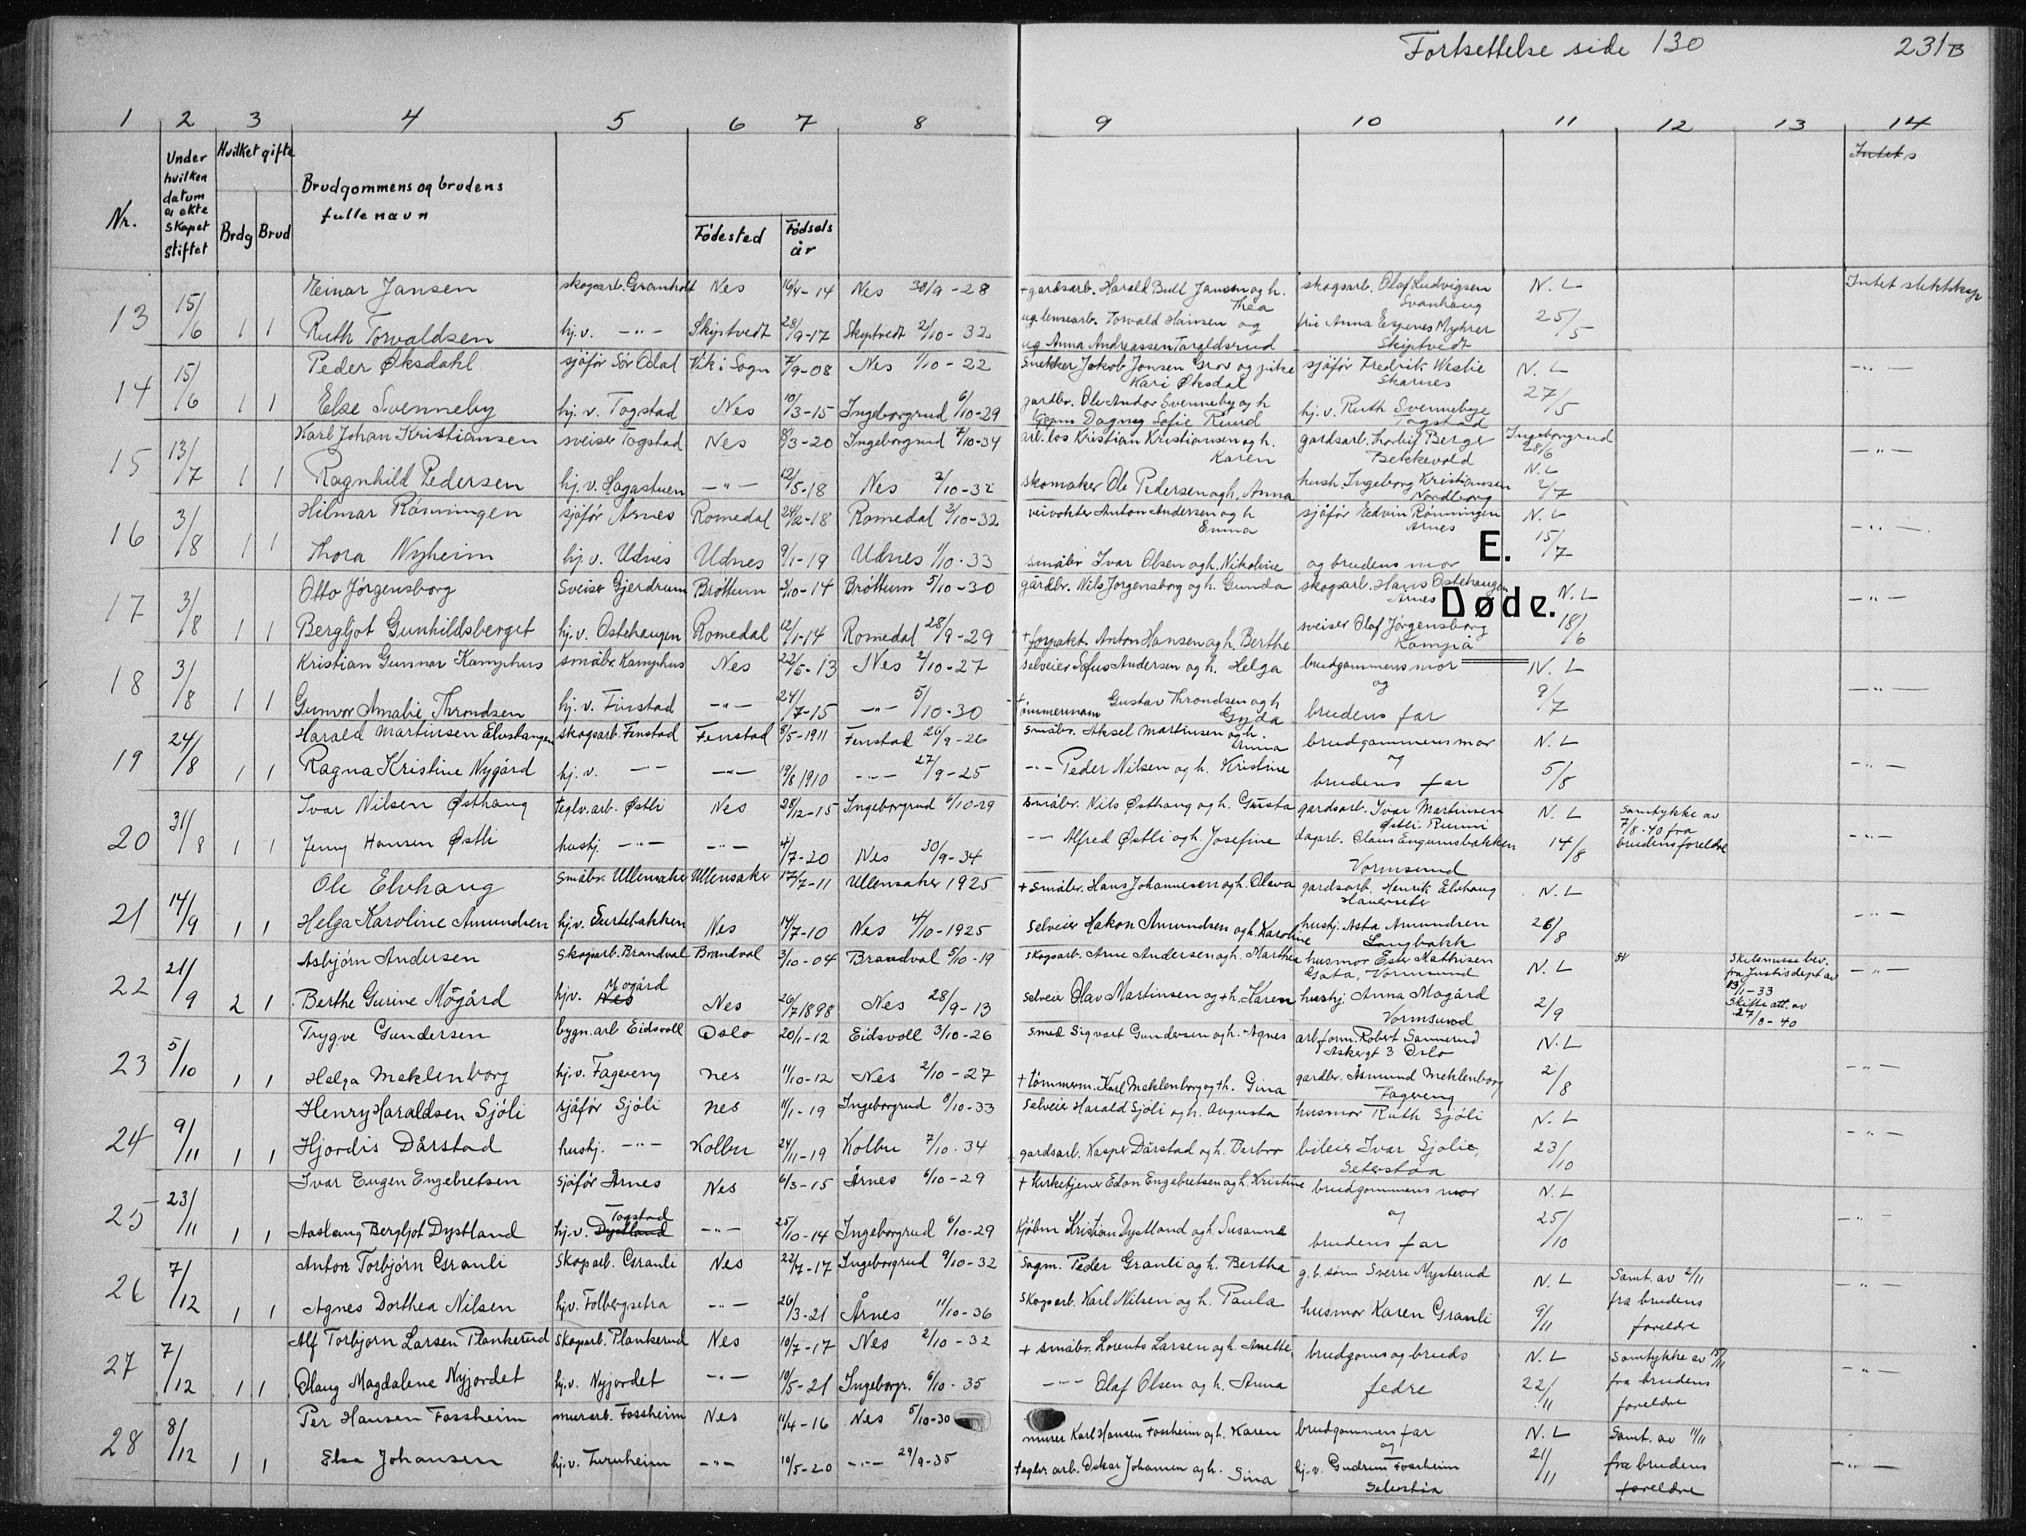 Fortsettelse side 130
231B
1 2 3 4 5 6 7 8 9 10 11 12 13 14
Nr.
Under hvilken datum er ekteskapet stiftet
Hvilket gifte
Brdg Brud
Brudgommens og brudens fulle navn
Fødested
Fødselsår
E.
Døde.
13 15/6 1 1
Einar Jansen skogsarb. Granholt Nes 16/4-14 Nes 30/9-28 + gardsarb. Harald Bull Jansen og h. Thea skogsarb. Olaf Ludvigsen Svanhaug N.L Intet slektskap
Ruth Torvaldsen hj.v. -"- Skiptvedt 28/9-17 Skiptvedt 2/10-32 ug. lensearb. Torvald Hansen og ug. Anna Andreassen Taraldsrud fru Anna Espenes Myhrer Skiptvedt 25/5
14 15/6 1 1
Peder Øksdahl sjåfør Sør Odal Vik i Sogn 7/9-08 Nes 1/10-22 Snekker Jakob Jonsen Grov og pike Kari Øksdal sjåfør Fredrik Westie Skarnes N.L -"-
Else Svenneby hj.v. Togstad Nes 10/3-15 Ingeborgrud 6/10-29 gardbr. Ole Andor Svenneby og h Dagny Sofie Ruud hj.v. Ruth Svennebye Togstad 27/5
15 13/7 1 1
Karl Johan Kristiansen sveiser Togstad Nes 8/3-20 Ingeborgrud 7/10-34 arb.løs Kristian Kristiansen og h. Karen gardsarb. Thorleif Berge Bekkevold Ingeborgrud 28/6 -"-
Ragnhild Pedersen hj.v. Hagastuen -"- 12/5-18 Nes 2/10-32 skomaker Ole Pedersen og h. Anna hush. Ingeborg Kristiansen Nordborg N.L 2/7
16 3/8 1 1
Hilmar Rønningen sjåfør Årnes Romedal 24/2-18 Romedal 2/10-32 veivokter Anton Andersen og h Emma sjåfør Edvin Rønningen Årnes N.L -"-
Thora Nyheim hj.v. Udnes Udnes 9/1-19 Udnes 1/10-33 småbr. Ivar Olsen og h. Nikoline og brudens mor 15/7
17 3/8 1 1
Otto Jørgensborg Sveiser Gjerdrum Brøttum 3/10-14 Brøttum 5/10-30 gårdbr. Nils Jørgensborg og h. Gunda skogsarb. Hans Østehaugen Årnes N.L -"-
Bergljot Gunhildsberget hj.v. Østehaugen Romedal 12/1-14 Romedal 28/9-29 + forpakt. Anton Hansen og h. Berthe sveiser Olaf Jørgensborg Kampå 18/6
18 3/8 1 1
Kristian Gunnar Kamphus småbr. Kamphus Nes 22/5-13 Nes 2/10-27 selveier Sofus Andersen og h. Helga brudgommens mor N.L
Gunvor Amalie Throndsen hj.v. Finstad -"- 24/7-15 -"- 5/10-30 + tømmermann Gustav Throndsen og h Gyda og brudens far 9/7 -"-
19 24/8 1 1
Harald Martinsen Elvstangen skogsarb. Fenstad Fenstad 8/5-1911 Fenstad 26/9-26 Småbr. Aksel Martinsen og h. Anna brudgommens mor N.L
Ragna Kristine Nygård hj.v. -"- -"- 19/8 1910 -"- 27/9-25 -"- Peder Nilsen og h. Kristine og brudens far 5/8 -"-
20 31/8 1 1
Ivar Nilsen Østhaug teglv.arb. Østli Nes 28/12-15 Ingeborgrud 6/10-29 småbr. Nils Østhaug og h. Gusta gardsarb. Ivar Martinsen Østli. Runni N.L Samtykke av 7/8-40 fra brudens foreldre
Jenny Hansen Østli hushj. -"- -"- 4/7-20 Nes 30/9-34 -"- Alfred Østli og h. Josefine dagarb. Claus Engumsbakken Vormsund 14/8 -"-
21 14/9 1 1
Ole Elvhaug Småbr. Ullensaker Ullensaker 17/7-11 Ullensaker 1925 + småbr. Hans Johannesen og h. Olava gardsarb. Henrik Elvhaug Hauerseter N.L
Helga Karoline Amundsen hj.v. Surtebakken Nes 14/7-10 Nes 4/10-1925 selveier Håkon Amundsen og h. Karoline hushj. Asta Amundsen Langbakk 26/8 -"-
22 21/9 2 1
Asbjørn Andersen Skogsarb. Brandval Brandval 3/10-04 Brandval 5/10-19 skogsarb. Arne Andersen og h. Marthea husmor Ester Mathisen Gata, Vormsund N.L Skilsmisse bev. fra Justisdept av 13/1-33 Skifteatt. av 27/8-40 -"-
Berthe Gurine Mögård hjv. Mogård Nes 26/7 1898 Nes 28/9-13 selveier Olav Martinsen og + h. Karen hushj. Anna Mogård Vormsund 2/9
23 5/10 1 1
Trygve Gundersen bygn.arb Eidsvoll Oslo 20/1-12 Eidsvoll 3/10-26 smed Sigvart Gundersen og h. Agnes arb.form. Robert Sannerud Askergt 3 Oslo N.L
Helga Meklenborg hj.v. Fagereng Nes 11/10-12 Nes 2/10-27 + tømmerm. Karl Meklenborg og + h. Gina gardbr. Åsmund Meklenborg Fagereng 2/8 -"-
24 9/11 1 1
Henry Haraldsen Sjöli sjåfør Sjöli Nes 11/1-19 Ingeborgrud 8/10-33 Selveier Harald Sjöli og h. Augusta husmor Ruth Sjöli N.L -"-
Hjordis Dårstad hushj. -"- Kolbu 24/11-19 Kolbu 7/10-34 gardsarb. Kasper Dårstad og h. Barbro bileier Ivar Sjølie, Seterstøa 23/10
25 23/11 1 1
Ivar Eugen Engebretsen Sjåfør Årnes Nes 6/3-15 Årnes 6/10-29 + kirketjener Edon Engebretsen og h. Kristine brudgommens mor N.L -"-
Aaslaug Bergljot Dystland hj.v. Togstad Dystland -"- 25/10-14 Ingeborgrud 6/10-29 Kjøbm Kristian Dystland og h. Susanne og brudens far 25/10
26 7/12 1 1
Anton Torbjørn Granli Skogsarb. Granli Nes 22/7-17 Ingeborgrud 9/10-32 Sagm. Peder Granli og h. Bertha g.b. sønn Sverre Mysterud N.L Samt. av 2/11 fra brudens foreldre -"-
Agnes Dorthea Nilsen hj.v. Folbergsetra -"- 26/3-21 Årnes 11/10-36 Skogsarb. Karl Nilsen og h. Paula husmor Karen Granli 9/11
27 7/12 1 1
Alf Torbjørn Larsen Plankerud Skogarb. Plankerud Nes 10/7-17 Nes 2/10-32 + småbr. Lorents Larsen og h. Anette brudgoms og bruds N.L Samtykke av 15/11 fra brudens foreldre -"-
Olaug Magdalene Nyjordet hj.v. Nyjordet -"- 10/5-21 Ingeborgr. 6/10-35 -"- Olaf Olsen og h. Anna fedre 22/11
28 8/12 1 1
Per Hansen Fossheim murarb. Fossheim Nes 11/4-16 Nes 5/10-30 murer Karl Hansen Fossheim og h. Karen brudgommens far N.L Samt. av 11/11 fra brudens foreldre
Elsa Johansen hj.v. Furuheim -"- 10/5-20 -"- 29/9-35 teglv. arb. Oskar Johansen og h. Sina og hj.v. Gudrun Fossheim Seterstøa 21/11 -"-